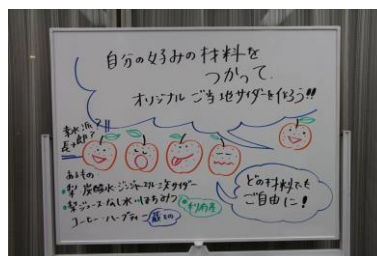 自分の好みの材料を
つかって、
オリジナルご当地サイダーを作ろう!!
幸水派?
長十郎?
あるもの
・梨 炭酸水・ジンジャーエール・三ツ矢サイダー
・梨ジュース・なし水・はちみつ
コーヒー・ハーブティー
どの材料でも
ご自由に!